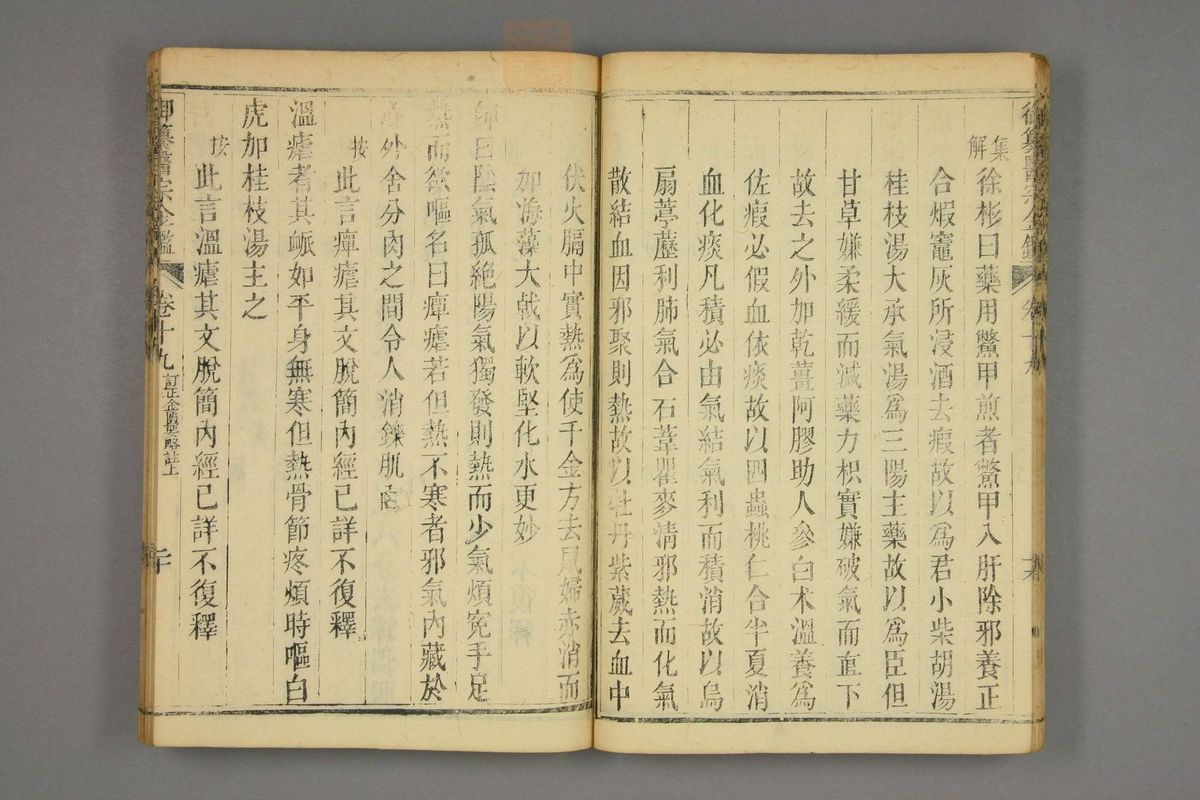 御纂醫宗金鑑 卷十九
集解
徐彬曰藥用鱉甲煎者鱉甲入肝除邪養正
合煅竈灰所浸酒去瘕故以爲君小柴胡湯
桂枝湯大承氣湯爲三陽主藥故以爲臣但
甘草嫌柔緩而減藥力枳實嫌破氣而直下
故去之外加乾薑阿膠助人參白术溫養爲
佐瘕必假血依痰故以四蟲桃仁合半夏消
血化痰凡積必由氣結氣利而積消故以烏
扇葶藶利肺氣合石葦瞿麥清邪熱而化氣
散結血因邪聚則熱故以牡丹紫葳去血中
伏火膈中實熱爲使千金方去鼠婦赤消而
加海藻大戟以軟堅化水更妙
師曰陰氣孤絶陽氣獨發則熱而少氣煩寃手足
熱而欲嘔名曰癉瘧若但熱不寒者邪氣內藏於
心外舍分肉之間令人消鑠肌肉
按
此言癉瘧其文脫簡內經已詳不復釋
溫瘧者其脈如平身無寒但熱骨節疼煩時嘔白
虎加桂枝湯主之
按
此言溫瘧其文脫簡內經已詳不復釋
御纂醫宗金鑑 卷十九 訂正金匱要略註上 二十